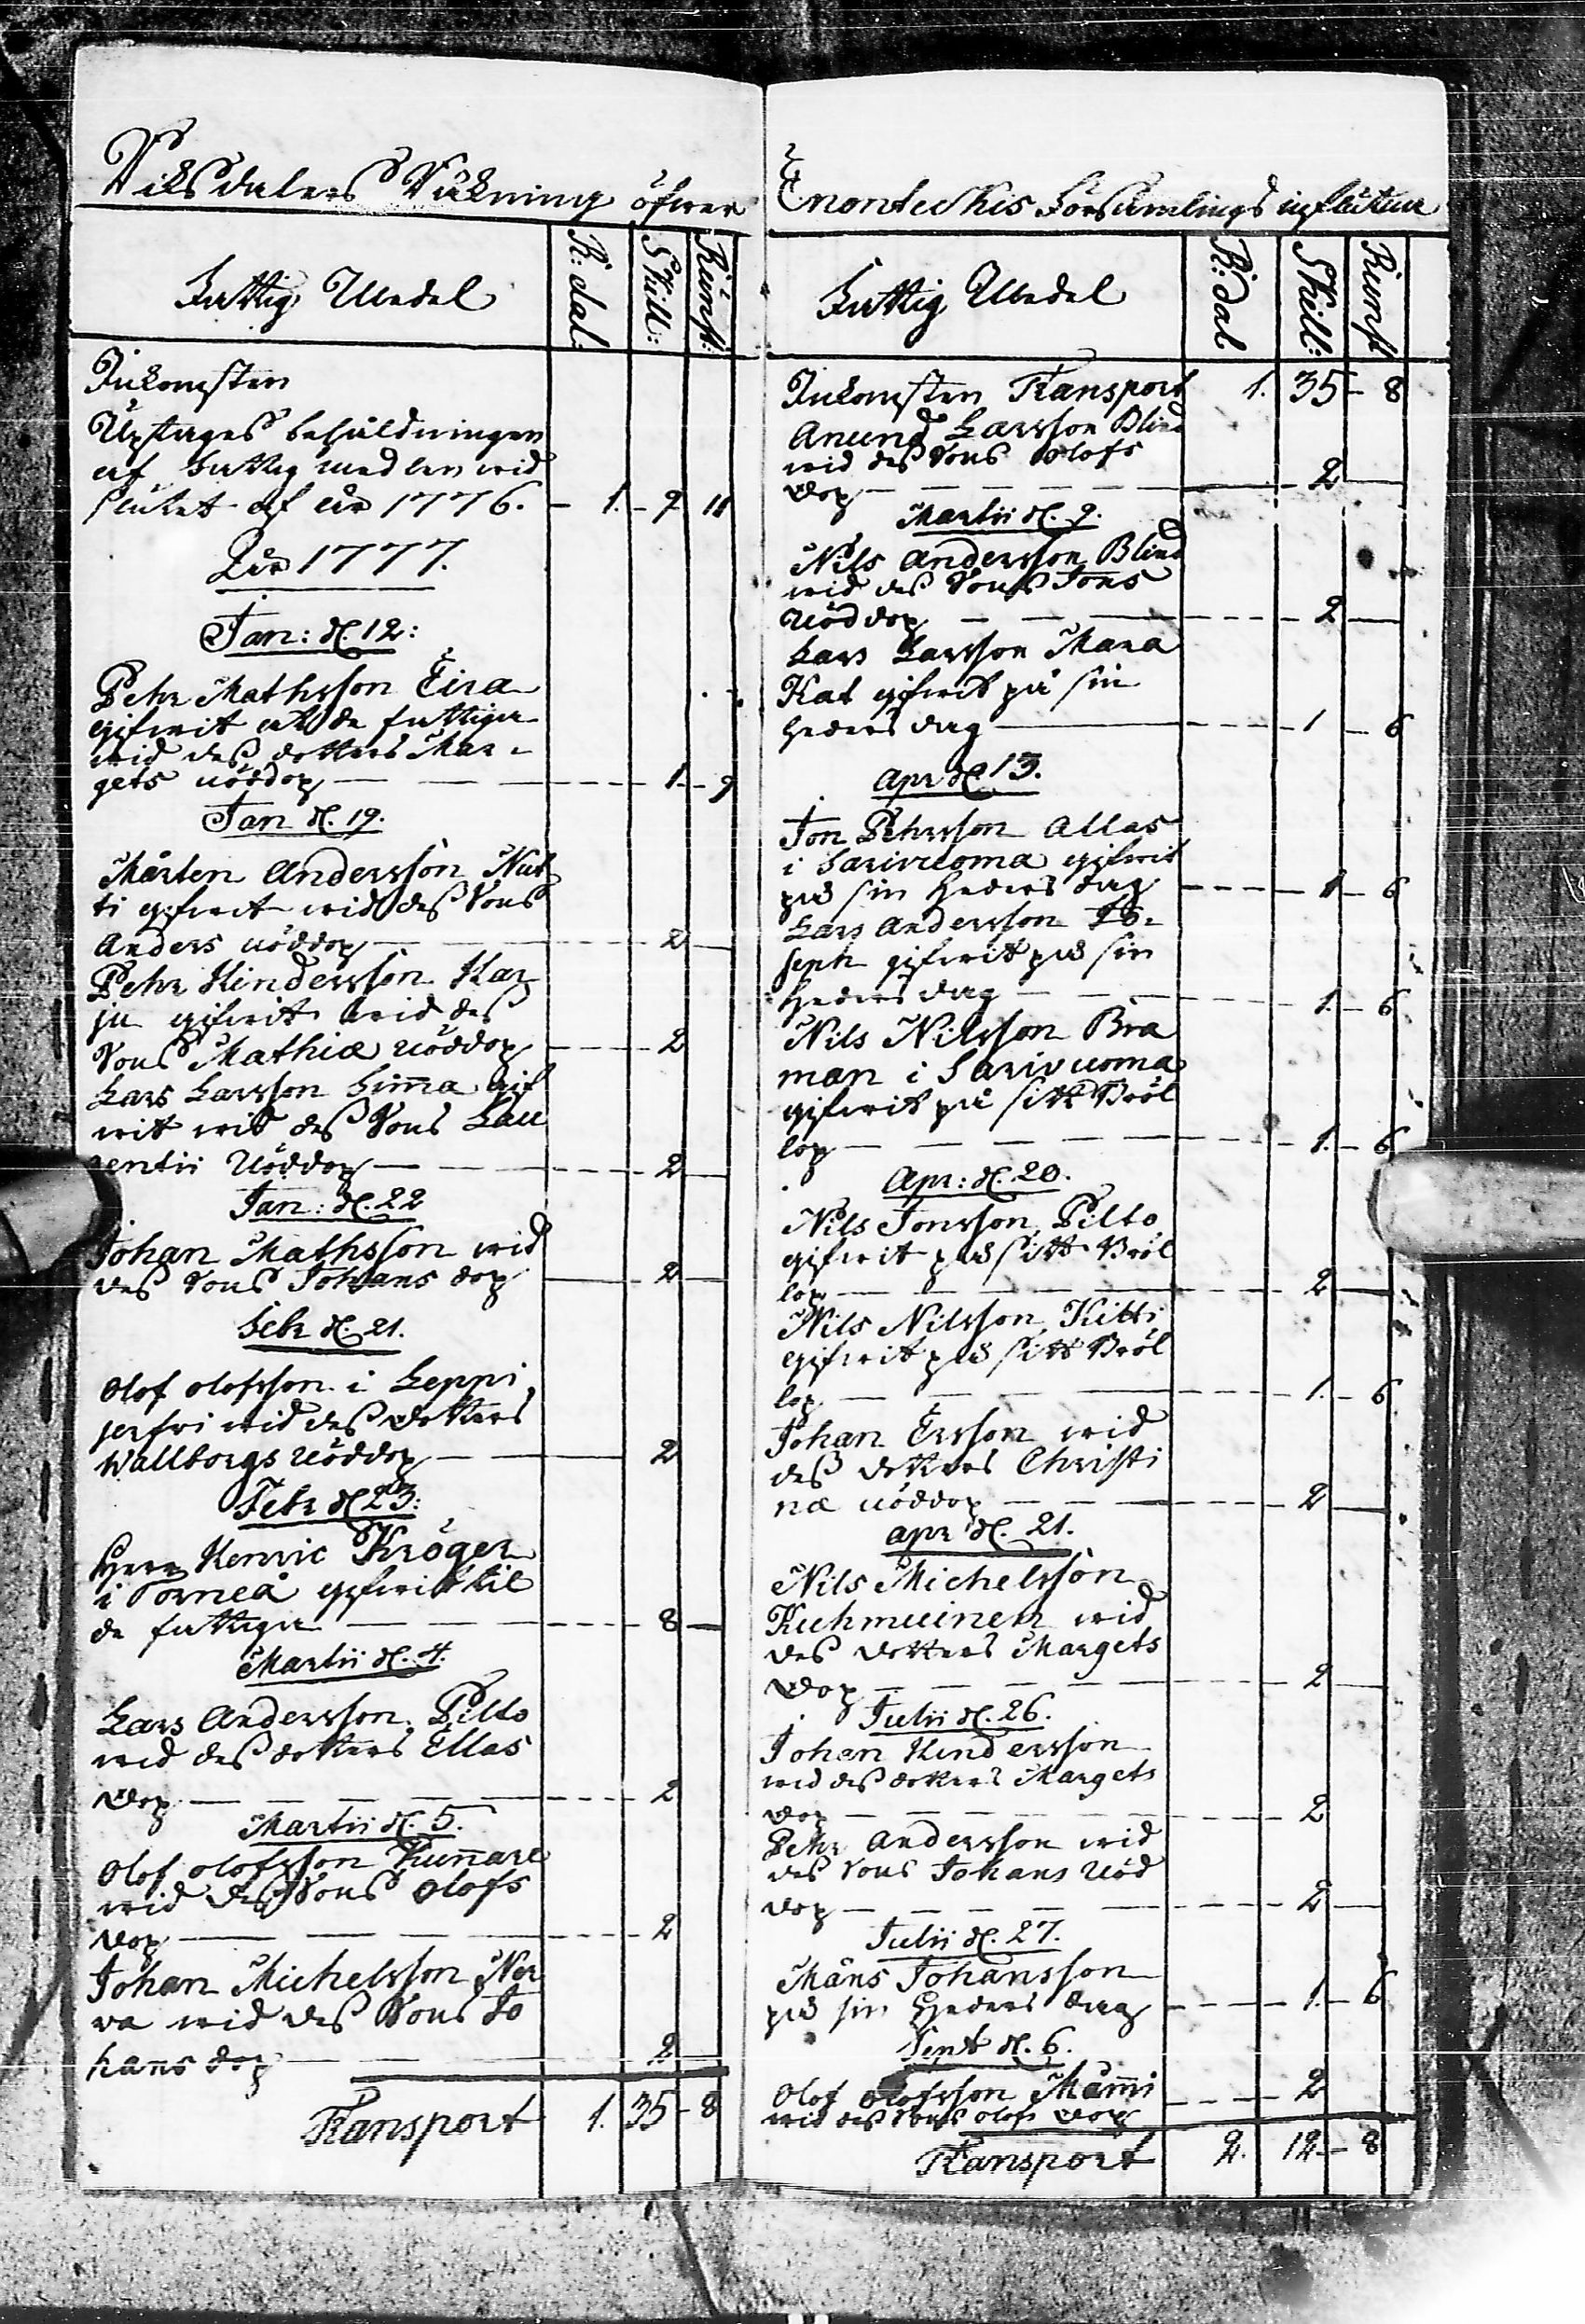 Riksdalers Räkning öfwer
Fattig Medel R:dal: Skill: Runst:
Inkomsten
Uptages behåldningen
af fattig medlen wid
slutet af år 1776. 1. 9 11
År 1777.
Jan: d. 12:
Pehr Mathsson Eira
gifwit at de fattiga
wid dess dotters Mar-
gets nöddop 1 9
Jan d. 19.
Mårten Andersson Nut
ti gifwit wid dess Sons
Anders nöddop 2
Pehr Hindersson Kar
ju gifwit wid dess
Sons Mathiæ nöddop 2
Lars Larsson Sima gif
wit wid dess Sons Lau
rentii Nöddop 2
Jan: d. 22
Johan Mathsson wid
dess Sons Johans dop 2
Febr d. 21.
Olof olofsson i Leppi
jerfwi wid dess dotters
Wallborgs nöddop 2
Febr d. 23:
Herr Henric Kröger
i Torneå gifwit til
de fattiga 8
Martii d. 4.
Lars Andersson Pilto
wid dess dotters Ellas
dop 2
Martii d. 5.
Olof olofsson Kunnare
wid dess Sons Olofs
dop 2
Johan Michelsson Ner
wa wid dess Sons Jo
hans dop 2
Transport 1. 35 - 8
Enontechis Församlings influtne
Fattig Medel R:dal Skill: Runst
Inkomsten Transport 1. 35 - 8
Anund Larsson Blind
wid dess Sons Olofs
dop 2
Martii d. 9.
Nils Andersson Blind
wid dess Sons Jons
Nöddop 2
Lars Larsson Mana
Kat gifwit på sin
heders dag 1 - 6
Apr d. 13.
Jon Pehrsson Allas
i Sariwuoma gifwit
på sin heders dag 1 - 6
Lars Andersson Jo-
seph gifwit på sin
heders dag 1. - 6
Nils Nilsson Bra
man i Sarivuoma
gifwit på sitt Bröl
lop 1. - 6
Apr: d. 20.
Nils Jonsson Pilto
gifwit på sitt Bröl
lop 2
Nils Nilsson Kitti
gifwit på sitt Bröl
lop 1. - 6
Johan Ersson wid
dess dotters Christi
næ nöddop 2
apr d. 21.
Nils Michelsson
Kuhmuinen wid
dess dotters Margets
dop 2
Julii d. 26.
Johan Hindersson
wid dess dotters Margets
dop 2
Pehr Andersson wid
dess Sons Johans Nöd
dop 2
Julii d. 27.
Måns Johansson
på sin heders dag 1. - 6
Sept d. 6.
Olof Olofsson Manni 2
wid dess Sons olofs dop
Transport 2. 12 - 8